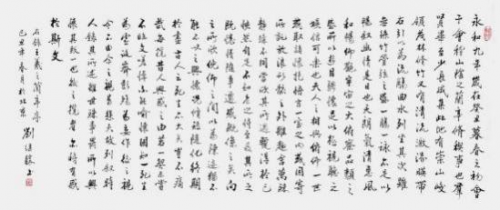 永和九年歲在癸丑暮春之初會
于會稽山陰之蘭亭脩禊事也群
賢畢至少長咸集此地有崇山峻
領茂林脩竹又有清流激湍暎帶
左右引以為流觴曲水列坐其次雖
無絲竹管弦之盛一觴一詠亦足以
暢叙幽情是日也天朗氣清惠風
和暢仰觀宇宙之大俯察品類之
盛所以遊目騁懷足以極視聽之
娛信可樂也夫人之相與俯仰一世
或取諸懷抱悟言一室之內或因
寄所託放浪形骸之外雖趣舍萬殊
靜躁不同當其欣於所遇蹔得於己
快然自足不知老之將至及其所之
既惓情隨事遷感慨係之矣向
之所欣俛仰之間以為陳迹猶不
能不以之興懷況脩短隨化終期
於盡古人云死生亦大矣豈不痛
哉每攬昔人興感之由若合一契未嘗
不臨文嗟悼不能喻之於懷固知一死生
為虛誕齊彭殤為妄作後之視
今亦由今之視昔悲夫故列叙時
人錄其所述雖世殊事異所以興
懷其致一也後之攬者亦將有感
於斯文
右錄王羲之蘭亭序
己丑年春月於北京
劉